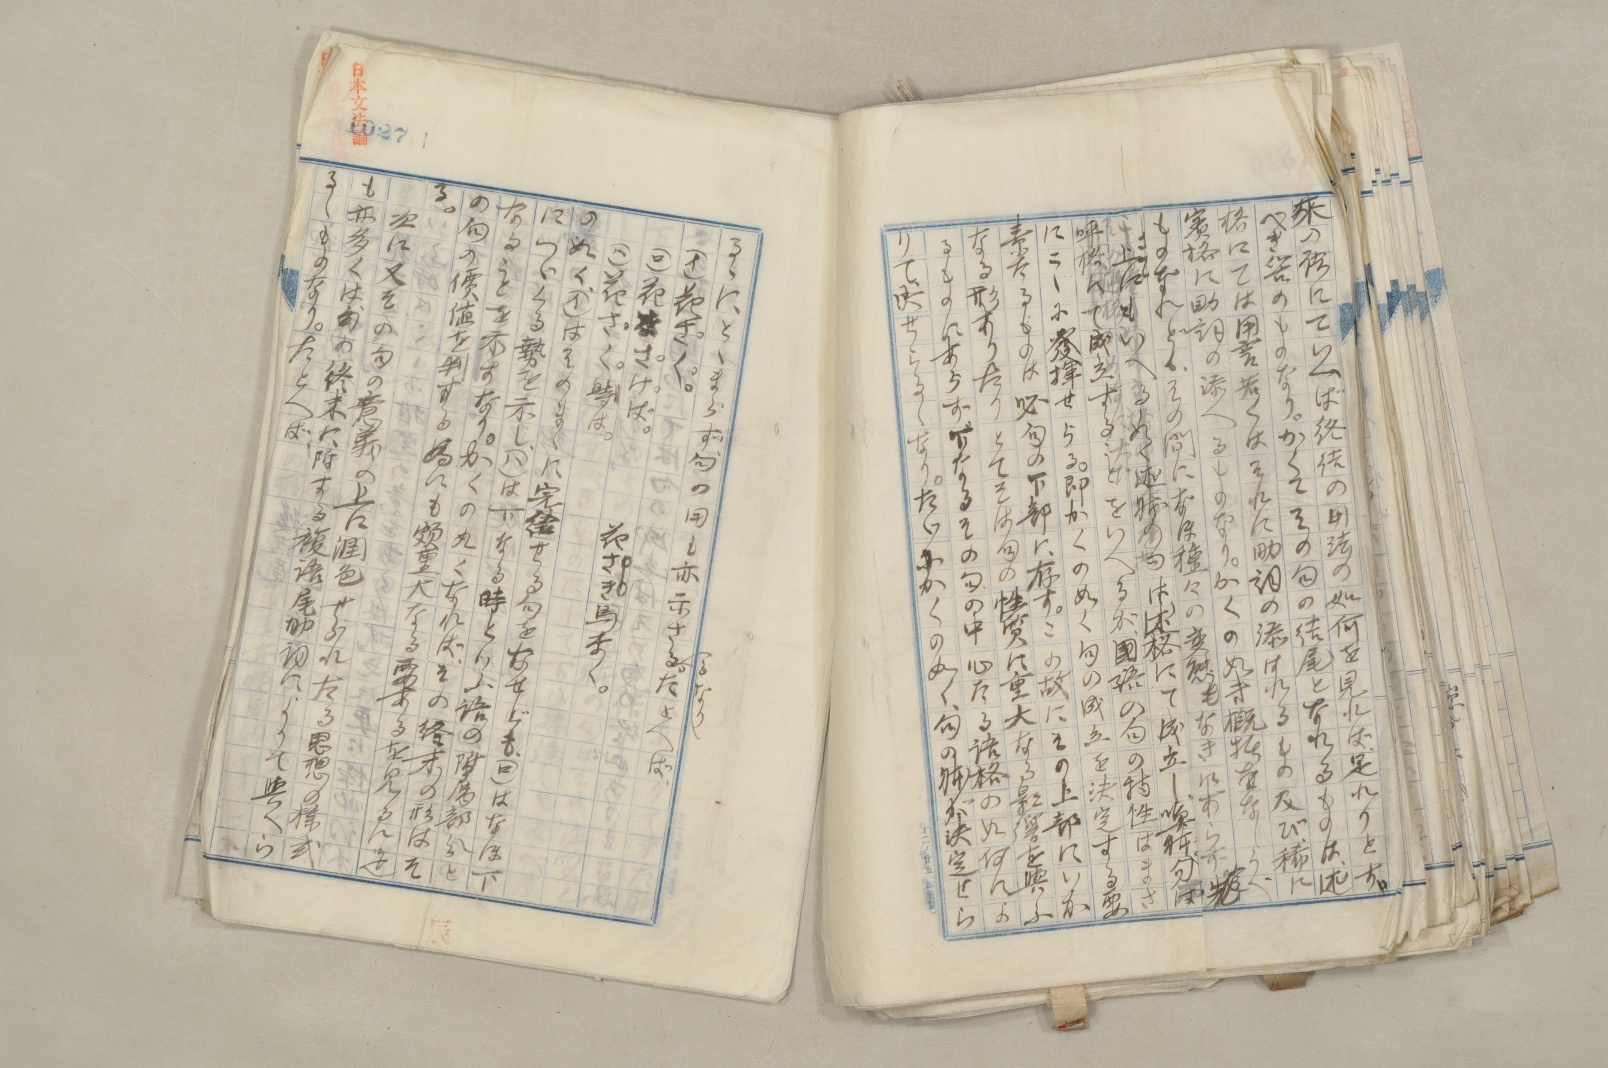 来の語にていへば終結の用法の如何を見れば足れりとす。
べき筈のものなり。かくてその句の結尾となれるものは、述
格にては用言若くはそれに助詞の添はれるもの及び稀に
賓格に助詞の添へるものなり。かくの如き概括をなしうべ
ものなれども、その間になほ種々の変態もなきにあらず。
上にもいへる如く述躰の句は述格にて成立し、喚躰句は
呼格にて成立するなどをいへるが国語の句の特性はまさ
にこゝに発揮せらる。即かくのぬく句の成立を決定する要
素たるものは必句の下部に存す。この故にその上部にいか
なる形ありたりとてそは句の性質に重大なる影響を与ふ
るものにあらず。下なるその句の中心たる語格の如何によ
りて決せらるゝなり。たゞにかくの如く、句の躰が決定せら
日本文法論
1027
るゝに、とゝまらず句の用も亦示さる。たとへば、
るなり
(イ)花さく。
(ロ)花さけば。
(ハ)花さく時は。 花さき鳥なく。
の如く(イ)はそのまゝに完結せる句をなせども、(ロ)はなほ下
につゞくる勢を示し、(ハ)は下なる時といふ語の附属部なと
なることを示すなり。かくの如くなれば、その終末の形はそ
の句の価値を判ずる為にも頗重大なる要あるを見るに至
る。
次に又その句の意義の上に潤色せられたる思想の様式
も亦多くは句の終末に附する複語尾助詞によりて与へら
るゝものなり。たとへば、